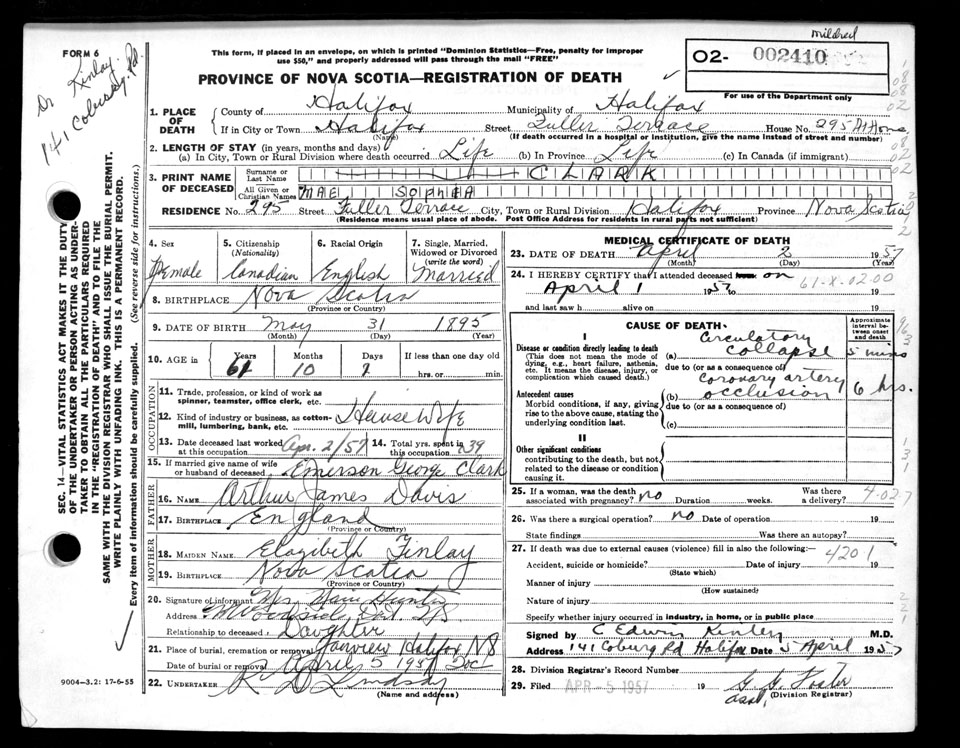 mildred
FORM 6
Dr Kinlay
141 Coburg Rd.
This form, if placed in an envelope, on which is printed "Dominion Statistics—Free, penalty for improper
use $50," and properly addressed will pass through the mail "FREE"
PROVINCE OF NOVA SCOTIA—REGISTRATION OF DEATH
02- 002410
For use of the Department only
1. PLACE OF DEATH
County of Halifax Municipality of Halifax
If in City or Town Halifax Street Fuller Terrace House No. 295 At Home
(Name) (If death occurred in a hospital or institution, give the name instead of street and number)
2. LENGTH OF STAY (in years, months and days)
(a) In City, Town or Rural Division where death occurred Life (b) In Province Life (c) In Canada (if immigrant)
3. PRINT NAME OF DECEASED
Surname or Last Name CLARK
All Given or Christian Names MAE SOPHEA
RESIDENCE No. 295 Street Fuller Terrace City, Town or Rural Division Halifax Province Nova Scotia
(Residence means usual place of abode. Post Office Address for residents in rural parts not sufficient)
4. Sex
Female
5. Citizenship
(Nationality)
Canadian
6. Racial Origin
English
7. Single, Married, Widowed or Divorced
(write the word)
Married
8. BIRTHPLACE Nova Scotia
(Province or Country)
9. DATE OF BIRTH May 31 1895
(Month) (Day) (Year)
10. AGE in Years Months Days If less than one day old
61 10 2 hrs. or min.
OCCUPATION
11. Trade, profession or kind of work as spinner, teamster, office clerk, etc.
12. Kind of industry or business, as cotton-mill, lumbering, bank, etc. House Wife
13. Date deceased last worked at this occupation Apr. 2/57 14. Total yrs. spent in this occupation 39
15. If married give name of wife or husband of deceased Emerson George Clark
FATHER
16. NAME Arthur James Davis
17. BIRTHPLACE England
(Province or Country)
MOTHER
18. MAIDEN NAME Elazibeth Finlay
19. BIRTHPLACE Nova Scotia
(Province or Country)
20. Signature of informant Mrs
Address Woodside
Relationship to deceased Daughter
21. Place of burial, cremation or removal Fairview Halifax NS
Date of burial or removal April 5 1957
22. UNDERTAKER R D Lindsay
(Name and address)
MEDICAL CERTIFICATE OF DEATH
23. DATE OF DEATH April 2 1957
(Month) (Day) (Year)
24. I HEREBY CERTIFY that I attended deceased from on
April 1 1957 to 19
61-X-02-00
and last saw h alive on 19
CAUSE OF DEATH
Approximate interval between onset and death
I
Disease or condition directly leading to death
(This does not mean the mode of dying, e.g., heart failure, asthenia, etc. It means the disease, injury, or complication which caused death.)
(a) Circulatory collapse 5 mins
due to (or as a consequence of)
Antecedent causes
Morbid conditions, if any, giving rise to the above cause, stating the underlying condition last.
(b) coronary artery occlusion 6 hrs.
due to (or as a consequence of)
(c)
II
Other significant conditions
contributing to the death, but not related to the disease or condition causing it.
25. If a woman, was the death associated with pregnancy? no Duration weeks. Was there a delivery?
4-02-7
26. Was there a surgical operation? no Date of operation 19
State findings Was there an autopsy?
27. If death was due to external causes (violence) fill in also the following:-
4201
Accident, suicide or homicide? Date of injury 19
(State which)
Manner of injury
(How sustained)
Nature of injury
Specify whether injury occurred in industry, in home, or in public place
Signed by C Edwin Kinley M.D.
Address 141 Coburg Rd Halifax Date 5 April 1957
28. Division Registrar's Record Number
29. Filed APR - 5 1957 19 G. G. Foster
asst. (Division Registrar)
SEC. 14—VITAL STATISTICS ACT MAKES IT THE DUTY
OF THE UNDERTAKER OR PERSON ACTING AS UNDER-
TAKER TO OBTAIN ALL THE PARTICULARS REQUIRED
IN THE "REGISTRATION OF DEATH" AND TO FILE THE
SAME WITH THE DIVISION REGISTRAR WHO SHALL ISSUE THE BURIAL PERMIT.
WRITE PLAINLY WITH UNFADING INK. THIS IS A PERMANENT RECORD.
Every item of information should be carefully supplied. (See reverse side for instructions.)
9004-3.2: 17-6-55